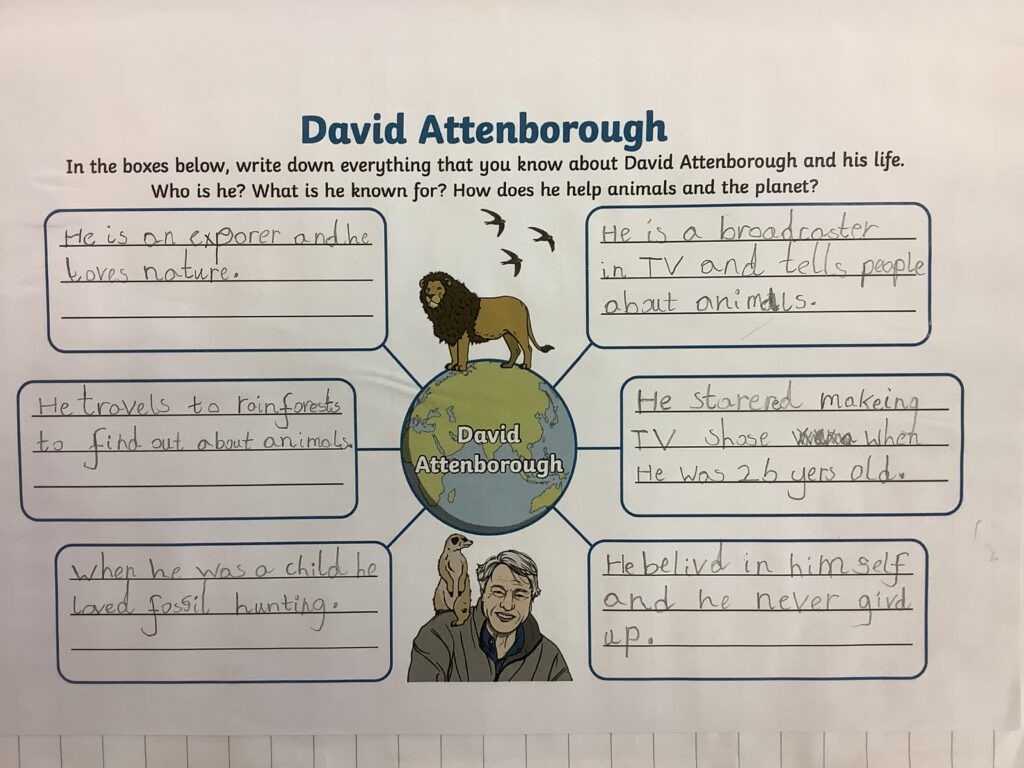 David Attenborough
In the boxes below, write down everything that you know about David Attenborough and his life.
Who is he? What is he known for? How does he help animals and the planet?
He is an exporer and he
loves nature.
He is a broadcaster
in TV and tells people
about animals.
He travels to rainforests
to find out about animals.
David
Attenborough
He starered makeing
TV shose when
He was 26 yers old.
When he was a child he
loved fossil hunting.
He belivd in himself
and he never givd
up.